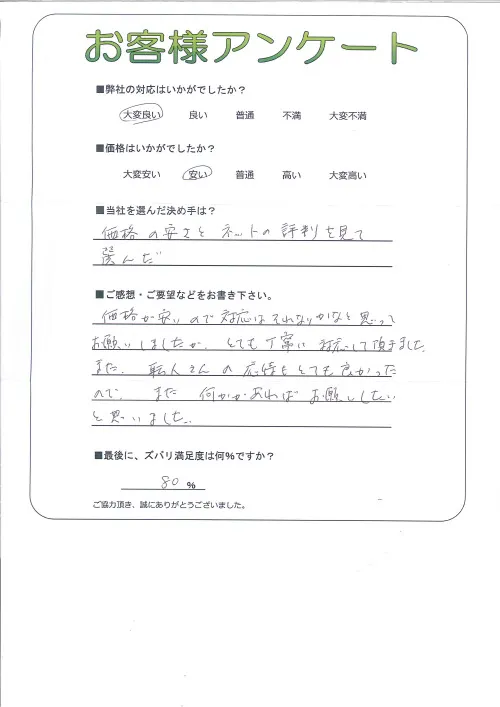 お客様アンケート
■弊社の対応はいかがでしたか？
大変良い 良い 普通 不満 大変不満
■価格はいかがでしたか？
大変安い 安い 普通 高い 大変高い
■当社を選んだ決め手は？
価格の安さとネットの評判を見て
選んだ
■ご感想・ご要望などをお書き下さい。
価格が安いので対応はそれなりかなと思って
お願いしましたが、とても丁寧に対応して頂きました。
また、職人さんの応待もとても良かった
ので、また何かがあればお願いしたい
と思いました。
■最後に、ズバリ満足度は何％ですか？
80 ％
ご協力頂き、誠にありがとうございました。